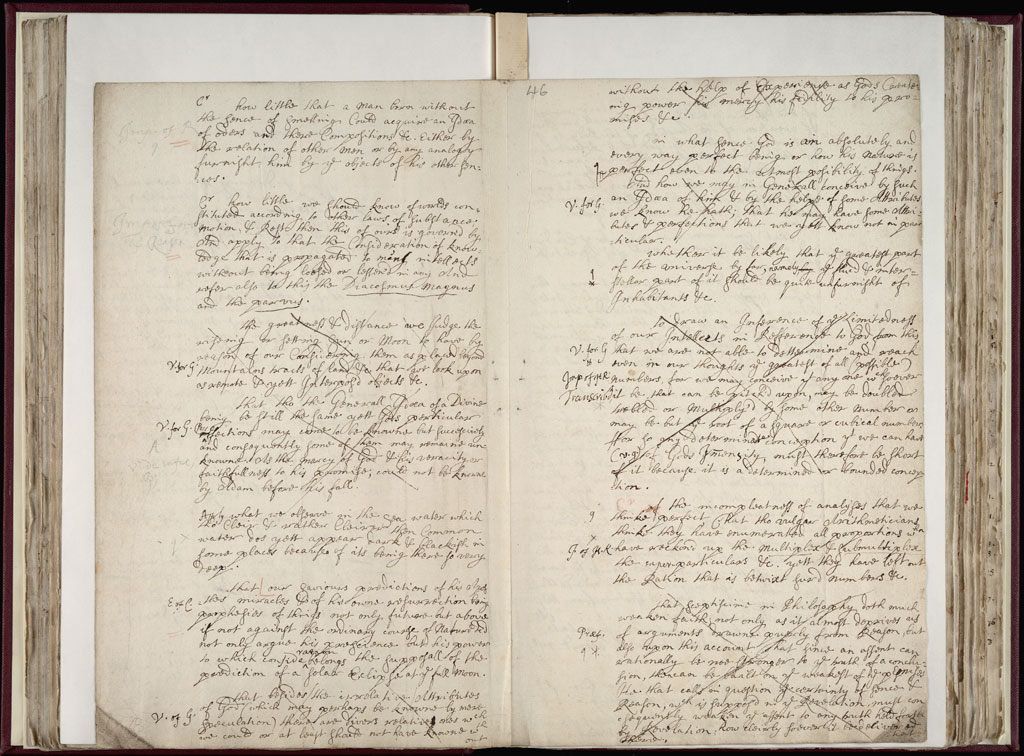 Cr how little that a man born without
the sence of smelling Could acquire an Idea
of odors and there Compositions &c. Either by
the relation of other men or by any analogy
furnisht him by ye objects of his other sen-
ces.
Cr how little we should know of worlds con-
stituted according to other laws of substance
motion, & Rest then this of ours is governed by
And apply to that the Consideration of know
ledge that is propagated to many intellects
without being losed or lessen'd in any And
refer also to this the Diacosmus Magnus
and the parvus.
The greatness & distance we Judge the
riseing or setting Sun or Moon to have by
reason of our Considering them as placed beyond
V. for G Mountains tracts of land &c that we look upon
as remote & yett Interpos'd objects &c.
That tho the Generall Idea of a Divine
being be still the same yett this perticular
V. for G. perfections may come to be knowne but successively
and consequently some of them may remaine un
knowne. As the mercy of God & his veracity or
faithfullness to his promise, could not be knowne
by Adam before his fall.
Apply what we observe in the sea water which
tho Cleir & rather Cleirer then Common
water dos yett appear dark & blackish in
some places because of its being there so very
Deep.
That our saviours predictions of his Apos
Ex C. tles miracles & of his owne resurrection being
prophesies of things not only, future but above
if not against the ordinary course of Nature do
not only argue his prescience but his power
to which belongs the supposall of the
prediction of a solar Eclipse at ye full Moon.
That besides the irrelative Attributes
V. of G of God (which may perhaps be knowne by mere
speculation) there are divers relative ones wch
we could or at least should not have knowne
out
46
without the help of Experience as Gods Create
ing power his mercy his fidelity to his pro-
mises &c.
in what sence God is an absolutely and
every way perfect being or how his Nature is
perfect even to the utmost posibility of things.
And how we may in Generall conceive by such
V. for G. an Idea of him & by the help of some Attributes
we know he hath; that he may have some Attri-
butes & perfections that we yett know not in par
ticular.
Whether it be likely that ye greatest part
of the universe by far, namely ye fluid & inter-
stellar part of it should be quite unfurnisht of
Inhabitants &c.
To draw an Inference of ye limitedness
of our Intellects in Refference to God from this
V. for G that we are not able to dettermine and reach
even in our thoughts ye greatest of all posible
numbers, for we may conceive yt any one wsoever
Transcrib'd it be that can be pitch'd upon, may be doubled
trebled or Multiply'd by some other number or
may be but ye Root of a square or cubical number
for so any determinate conception yt we can have
of Gods Imensity, must therefore be short
of it because it is a determined or bounded concep
tion.
q Of the incompleatness of analyses that we
thinke perfect (that tho vulgar Arithmeticians
thinke they have enumerated all proportions wn
they have reckon'd up the multiplex & submultiplex
the superparticulars &c. yett they have left out
the Ration that is betwixt surd numbers &c.
That scepticisme in Philosophy doth much
weaken faith not only, as it almost deprives us
of arguments drawne purely from Reason, but
q also upon this account that since an assent can
rationally be noe stronger to ye truth of a conclu-
sion, then can be built on ye weakest of ye premisses
He that calls in question ye certainty of sence &
Reason, wch is suppos'd in ye Revelation, must con
sequently weaken ye assent to any truth held forth
by Revelation, how clearly soever it be deliver'd
not